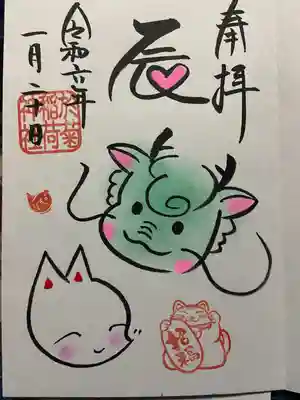 奉拝
辰
令和六年
一月二十日
於菊
稲荷
神社
招福